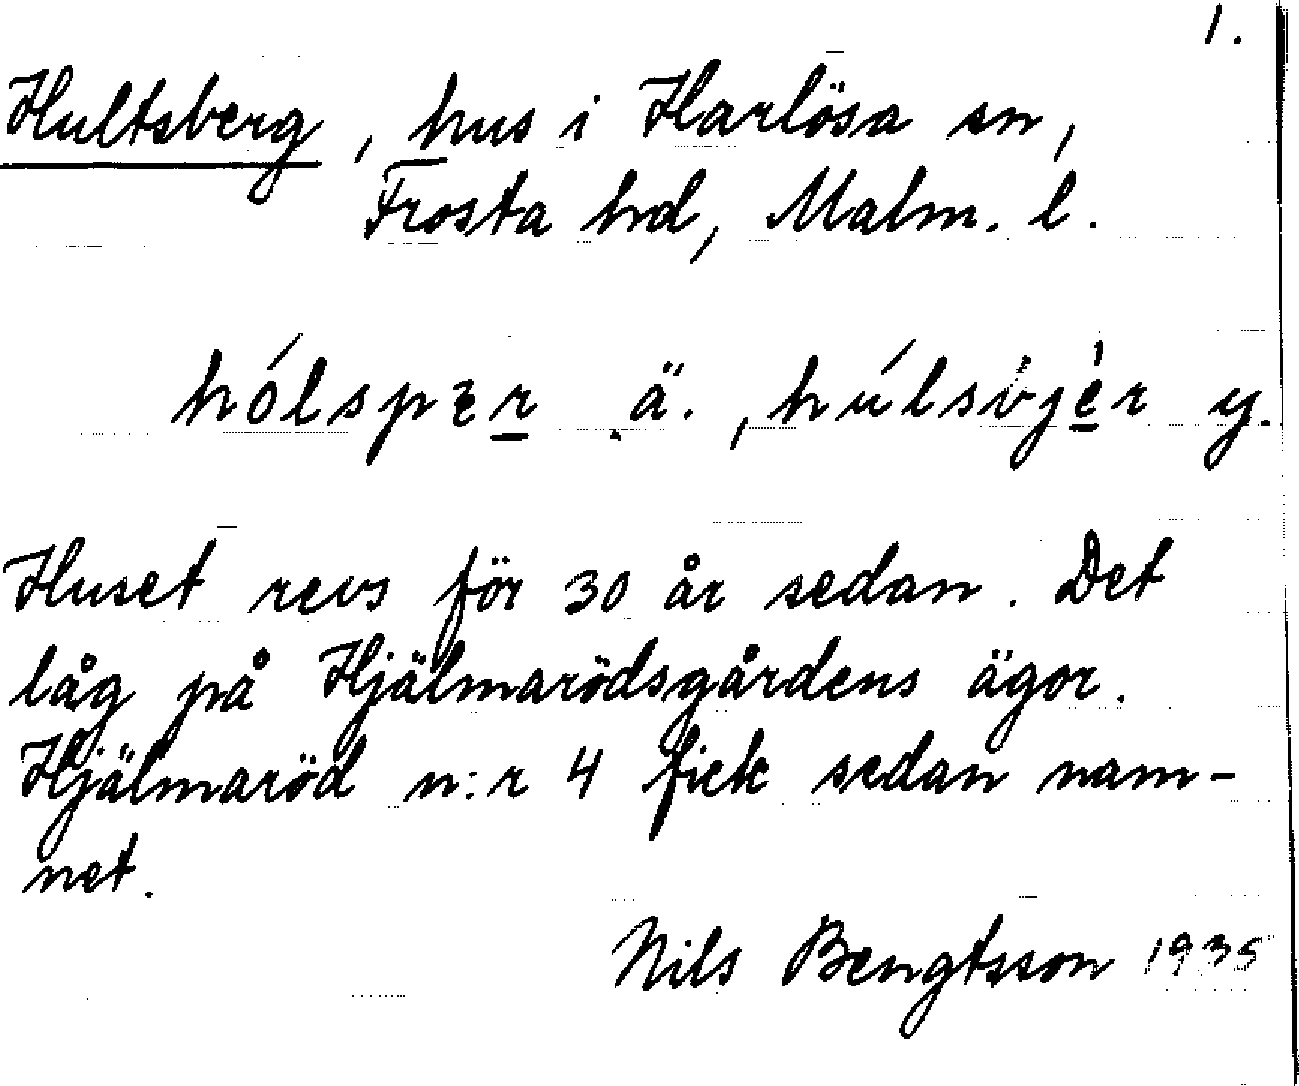 1.
Hultsberg, hus i Harlösa sn,
Frosta hd, Malm. l.
hólspɛr ä., húlsbjèr y.
Huset revs för 30 år sedan. Det
låg på Hjälmarödsgårdens ägor.
Hjälmaröd n:r 4 fick sedan nam-
net.
Nils Bengtsson 1935